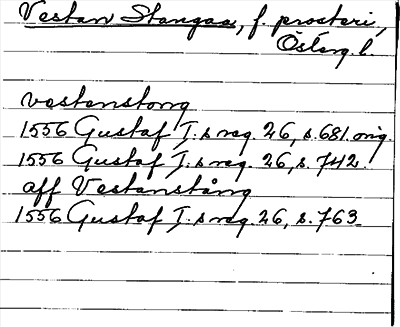 Vestan Stangaa, f. prosteri,
Österg. l.
vestanstong
1556 Gustaf I:s reg. 26, s. 681 orig.
1556 Gustaf I:s reg. 26, s. 742.
aff Vestanstång
1556 Gustaf I:s reg. 26, s. 763